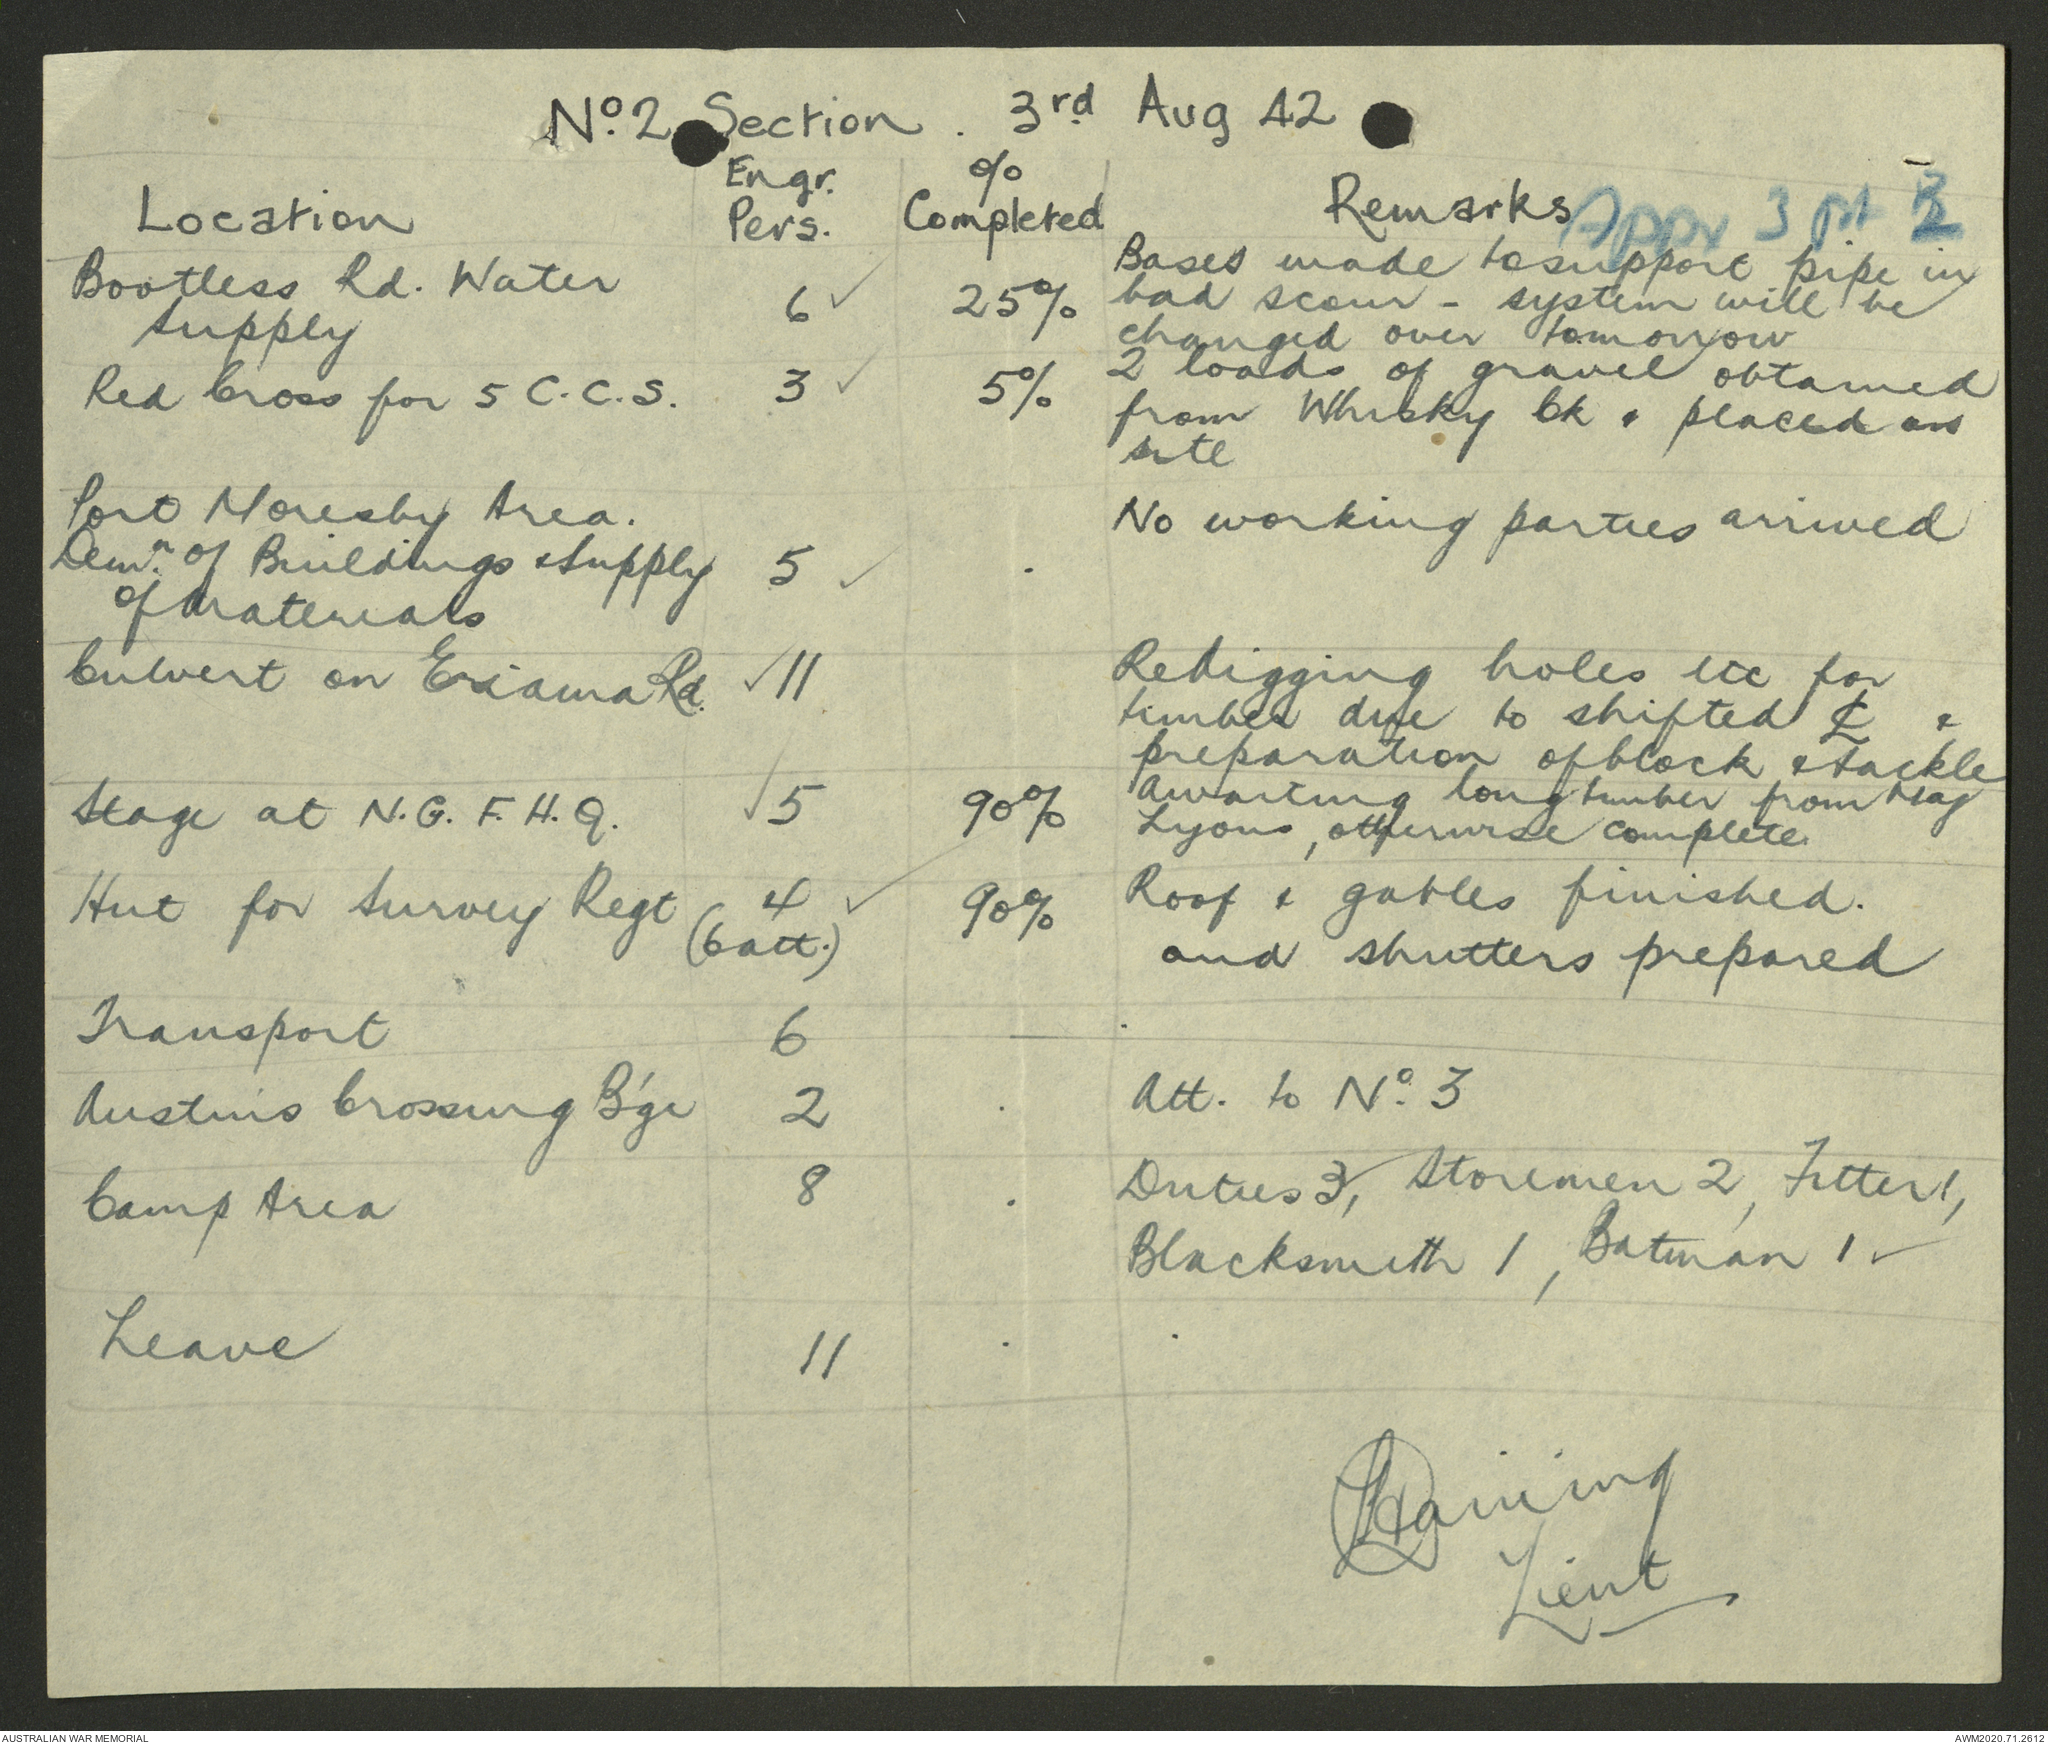 No. 2 Section. 3rd Aug 42
Location
Engr.
Pers.
%
Completed
Remarks
Appx 3 pt B2
Bootless Rd. Water
Supply
6 ✓
25%
Bases made to support pipe in
bad scour - system will be
changed over tomorrow
Red Cross for 5 C.C.S.
3 ✓
5%
2 loads of gravel obtained
from Whisky Ck & placed on
site
Port Moresby Area.
Dem'n. of Buildings & Supply
of Materials
5 ✓
.
No working parties arrived
Culvert on Eriama Rd.
✓ 11
Redigging holes etc for
timber due to shifted ℄ &
preparation of block & tackle
Stage at N.G.F.H.Q.
✓ 5
90%
Awaiting long timber from Maj
Lyons, otherwise complete.
Hut for Survey Regt
4 ✓
(6 att.)
90%
Roof & gables finished.
and shutters prepared
Transport
6
—
.
Austins Crossing B'ge
2
.
Att. to No. 3
Camp Area
8
.
Duties 3, Storemen 2, Fitter 1,
Blacksmith 1, Batman 1 ✓
Leave
11
.
.
Lieut
AUSTRALIAN WAR MEMORIAL
AWM2020.71.2612